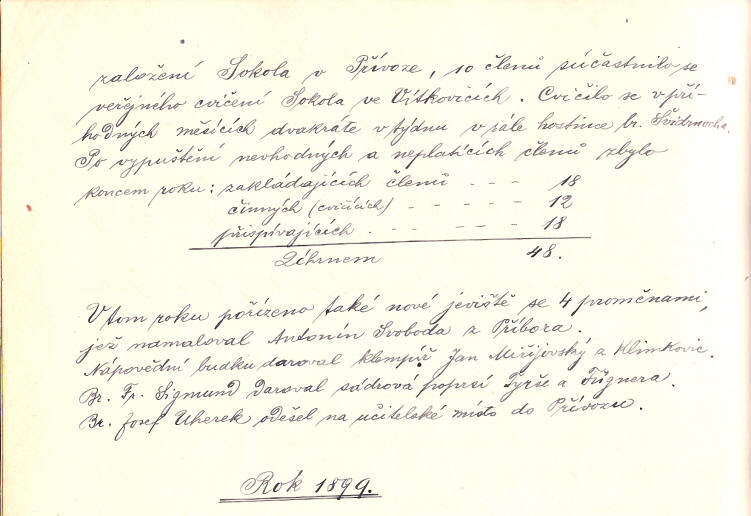 založení Sokola v Přívoze, 10 členů súčastnilo se
veřejného cvičení Sokola ve Vítkovicích. Cvičilo se v pří-
hodných měsících dvakráte v týdnu v sále hostince br. Švidrnocha.
Po vypuštění nevhodných a neplatících členů zbylo
koncem roku: zakládajících členů - - - 18
činných (cvičících) - - - - - - 12
přispívajících . - - - - - - 18
Úhrnem 48.
V tom roku pořízeno také nové jeviště se 4 proměnami,
jež namaloval Antonín Svoboda z Příbora.
Nápovědní budku daroval klempíř Jan Miřijovský z Klimkovic.
Br. Fr. Sigmund daroval sádrová poprsí Tyrše a Fügnera.
Br. Josef Uherek odešel na učitelské místo do Přívozu.
Rok 1899.